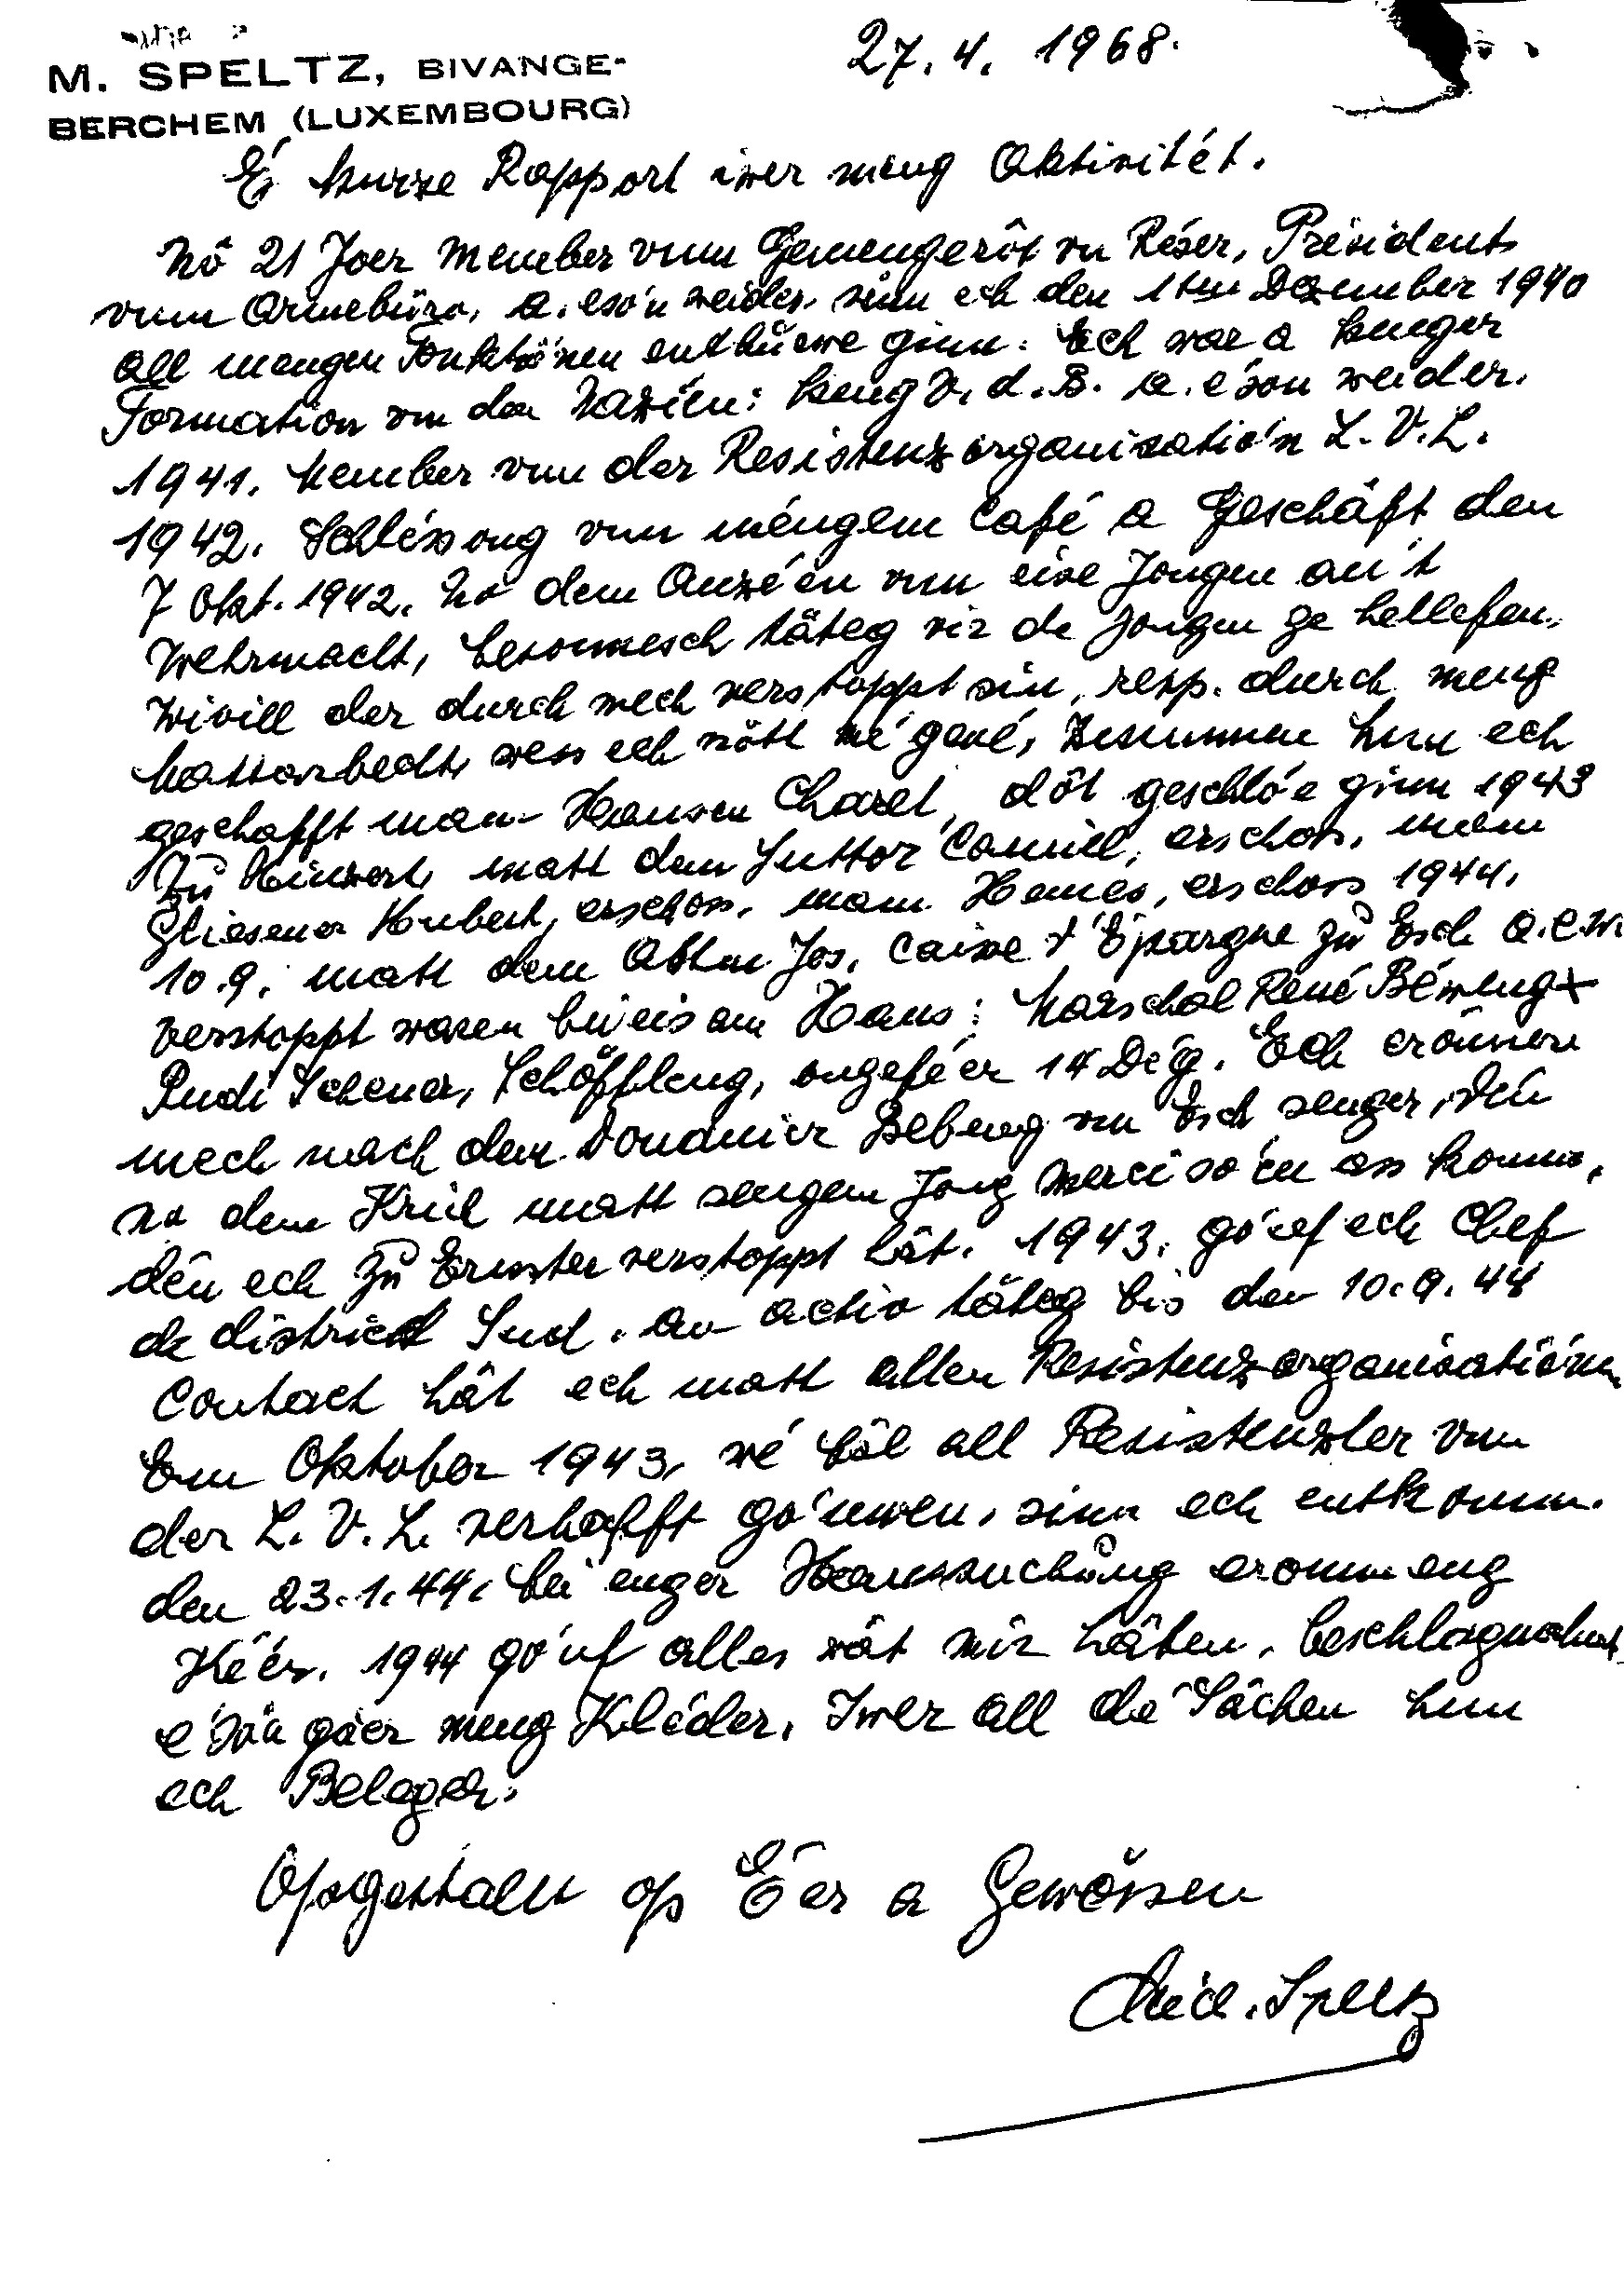 M. SPELTZ, BIVANGE-
BERCHEM (LUXEMBOURG)
27. 4. 1968.
E' kurze Rapport iwer meng Aktivitét.
Nô 21 Joer Member vum Gemengerôt vu Réser, Präsident
vum Armebüro, a. eso'u weider, sinn ech den 1ten Dezember 1940
all mengen Fonktio'nen enthuewe ginn. Ech war a kenger
Formation vun den Nazien: keng V. d. B. a. e'sou weider.
1941. Member vun der Resistenzorganisatio'n L. V. L.
1942. Schléssong vun méngem Café a Geschäft den
7 Okt. 1942. No dem Anzéen vun eise Jongen an 't
Wehrmacht, besonnesch täteg vir de Jongen ze hellefen.
Wivill der durch mech verstoppt sin, resp. durch meng
Mattarbecht, wess ech nött mé gené, Zesumme hun ech
geschafft mam Hansen Charel, dôt geschlo'e ginn 1943
Zu Hinzert, matt dem Suttor Camill, erschoss, mam
Gliesener Hubert, erschoss, mam Hemes, erschoss 1944.
10.9. matt dem Jos. Caisse d'Epargne zu Esch a.e.w.
Verstoppt waren bei eis am Haus: Marschal René Béweng
Rudi Schener, Schöffleng, ongeféer 14 Dég. Ech erönnere
mech nach den Douanier Bebeng vun Esch senger, dén
no dem Krich matt sengem Jong merci so'en ass komm,
dén ech zu Ernster verstoppt hât. 1943. go'uf ech Chef
de district Sud. an activ täteg bis den 10.9.44
Contact hât ech matt allen Resistenzorganisatio'nen
Em Oktober 1943, wé bâl all Resistenzler vun
der L. V. L. verhafft go'uwen, sinn ech entkomm.
den 23.1.44, bei enger Haussuchung eromm eng
Kéer. 1944 go'uf alles wât mir hâten, beschlagnahmt,
e'sôu guer meng Kléder. Iwer all dé Sâchen hun
ech Beleger.
Opgestallt op E'er a Gewössen
Mich. Speltz